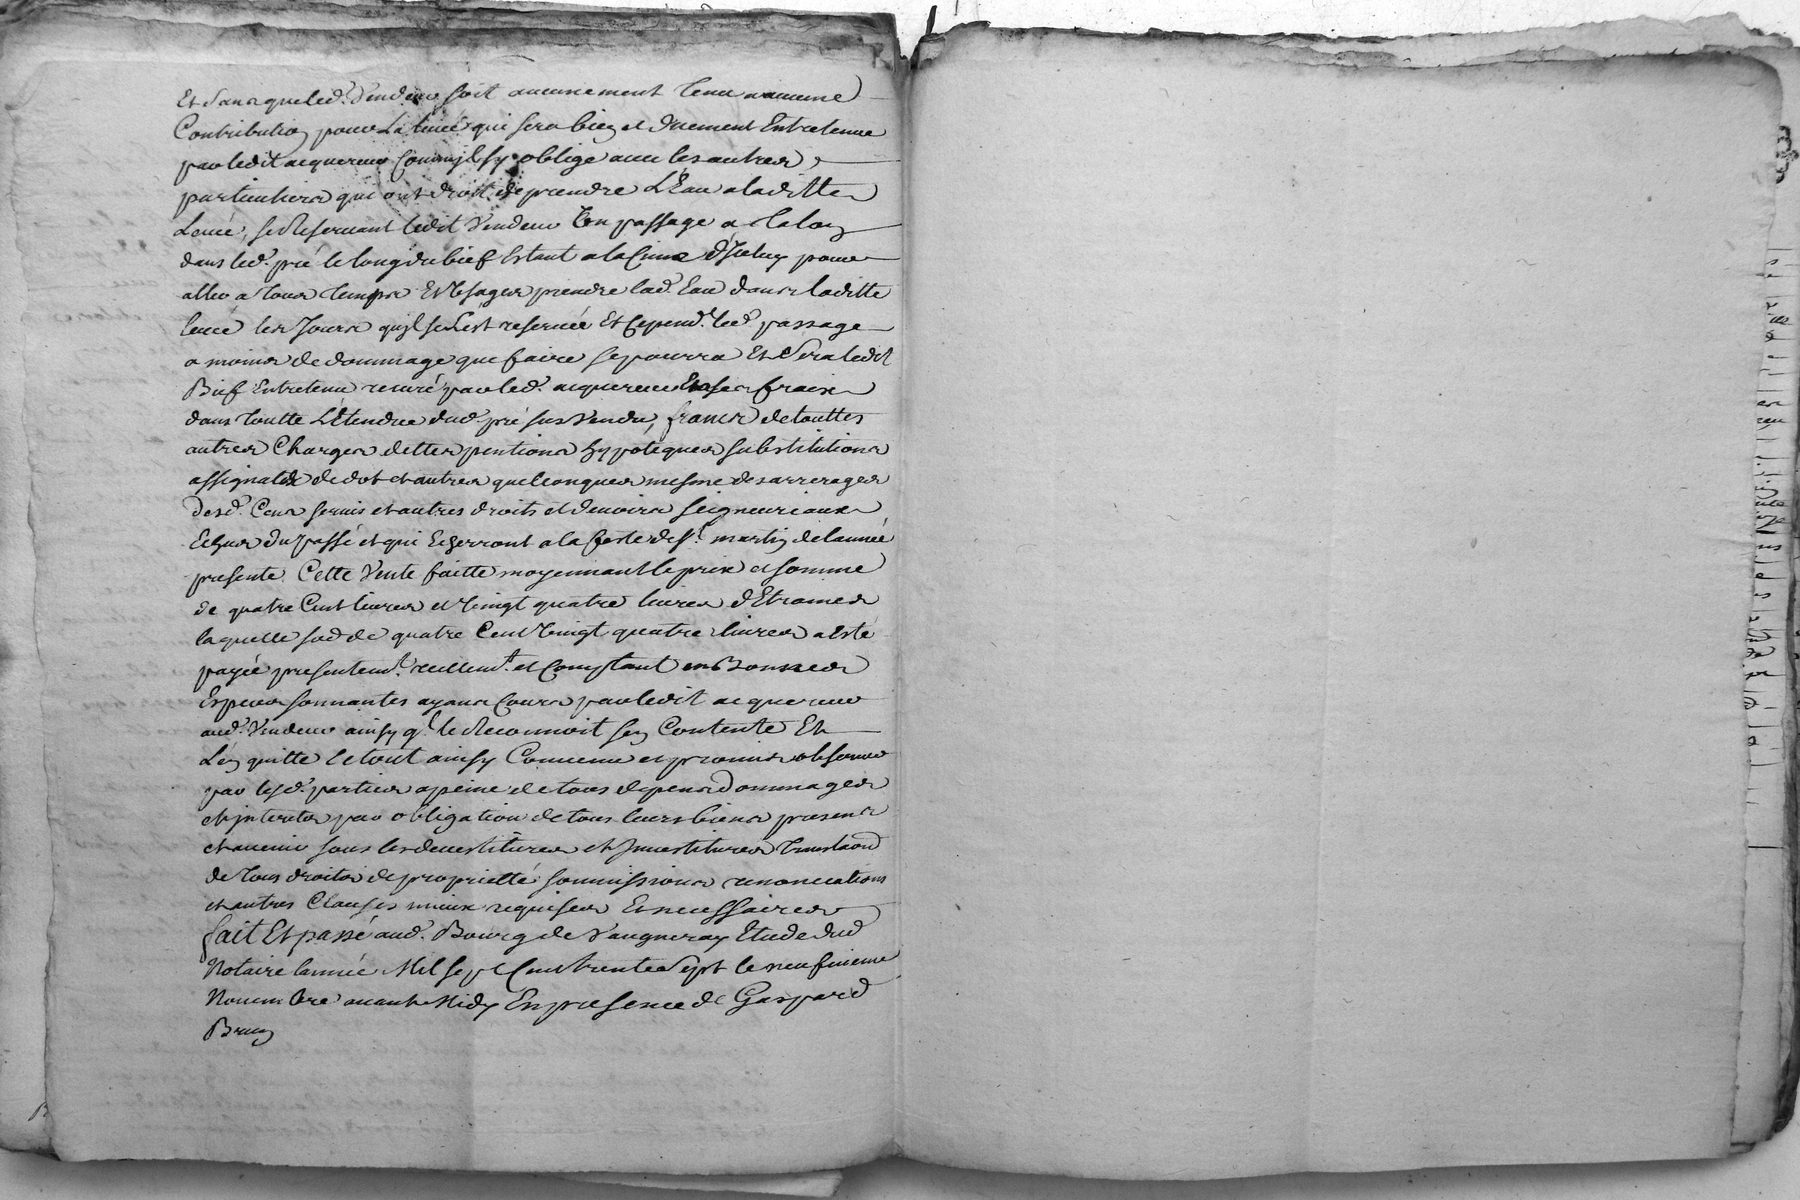 Et sans que led. Vendeur soit aucunement tenu a aucune
Contribution pour La leveé qui sera bien et duement Entretenue
par ledit acquereur Comm'jl sy oblige avec les autres
particuliers qui ont droit de prendre L'Eau a laditte
Leveé, se Reservant ledit Vendeur Un passage a Talon
dans led. pré le long du bief Estant a la Cime d'Jceluy pour
aller a tous temps Et Usages prendre lad. Eau dans laditte
leveé les Jours qujl se L'est reservée Et Cepend.t led. passage
a moins de dommage que faire se pourra Et Sera ledit
Bief Entretenu recuré par led. acquereur Et a ses fraix
dans toutte L'Etendue dud. pré sus vendu, francs de touttes
autres Charges dettes pentions hypoteques substitutions
assignatx de dot et autres quelconques mesme des arrerages
desd. Cens servis et autres droits et devoirs seigneuriaux
Echus du passé et qui Echerront a la feste de S.t martin de l'anneé
presente. Cette Vente faitte moyennant le prix et somme
de quatre Cent livres et Vingt quatre livres d'Etrennes
laquelle sod de quatre Cent Vingt quatre livres a Esté
payée presentem.t reellem.t et Comptant en Bonnes
Especes sonnantes ayans Cours par ledit acquereur
aud. Vendeur ainsy q.l le Reconnoit s'en Contente Et
L'en quitte le tout ainsy Convenu et promis observer
par lesd. parties a peine de tous depens dommages
et jnterets par obligation de tous leurs biens presens
et avenir sous les devestitures et Jnvestitures translaon
de tous droits de proprietté soumissions renonciations
et autres Clauses mieux requises Et necessaires
fait Et passé aud. Bourg de Vaugneray Etude dud
Notaire l'année Mil sept Cent trente Sept le neufvieme
Novembre avant Midy En presence de Gaspard
Brun